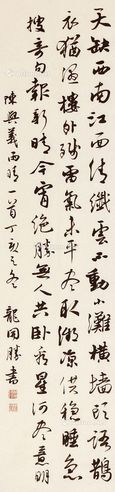 天缺西南江面清纖雲不動小灘橫墻頭語鵲
衣猶濕樓外殘雷氣未平盡取微涼供穩睡急
搜奇句報新晴今宵絕勝無人共臥看星河盡意明
陳與義雨晴一首丁亥之冬 龍開勝書